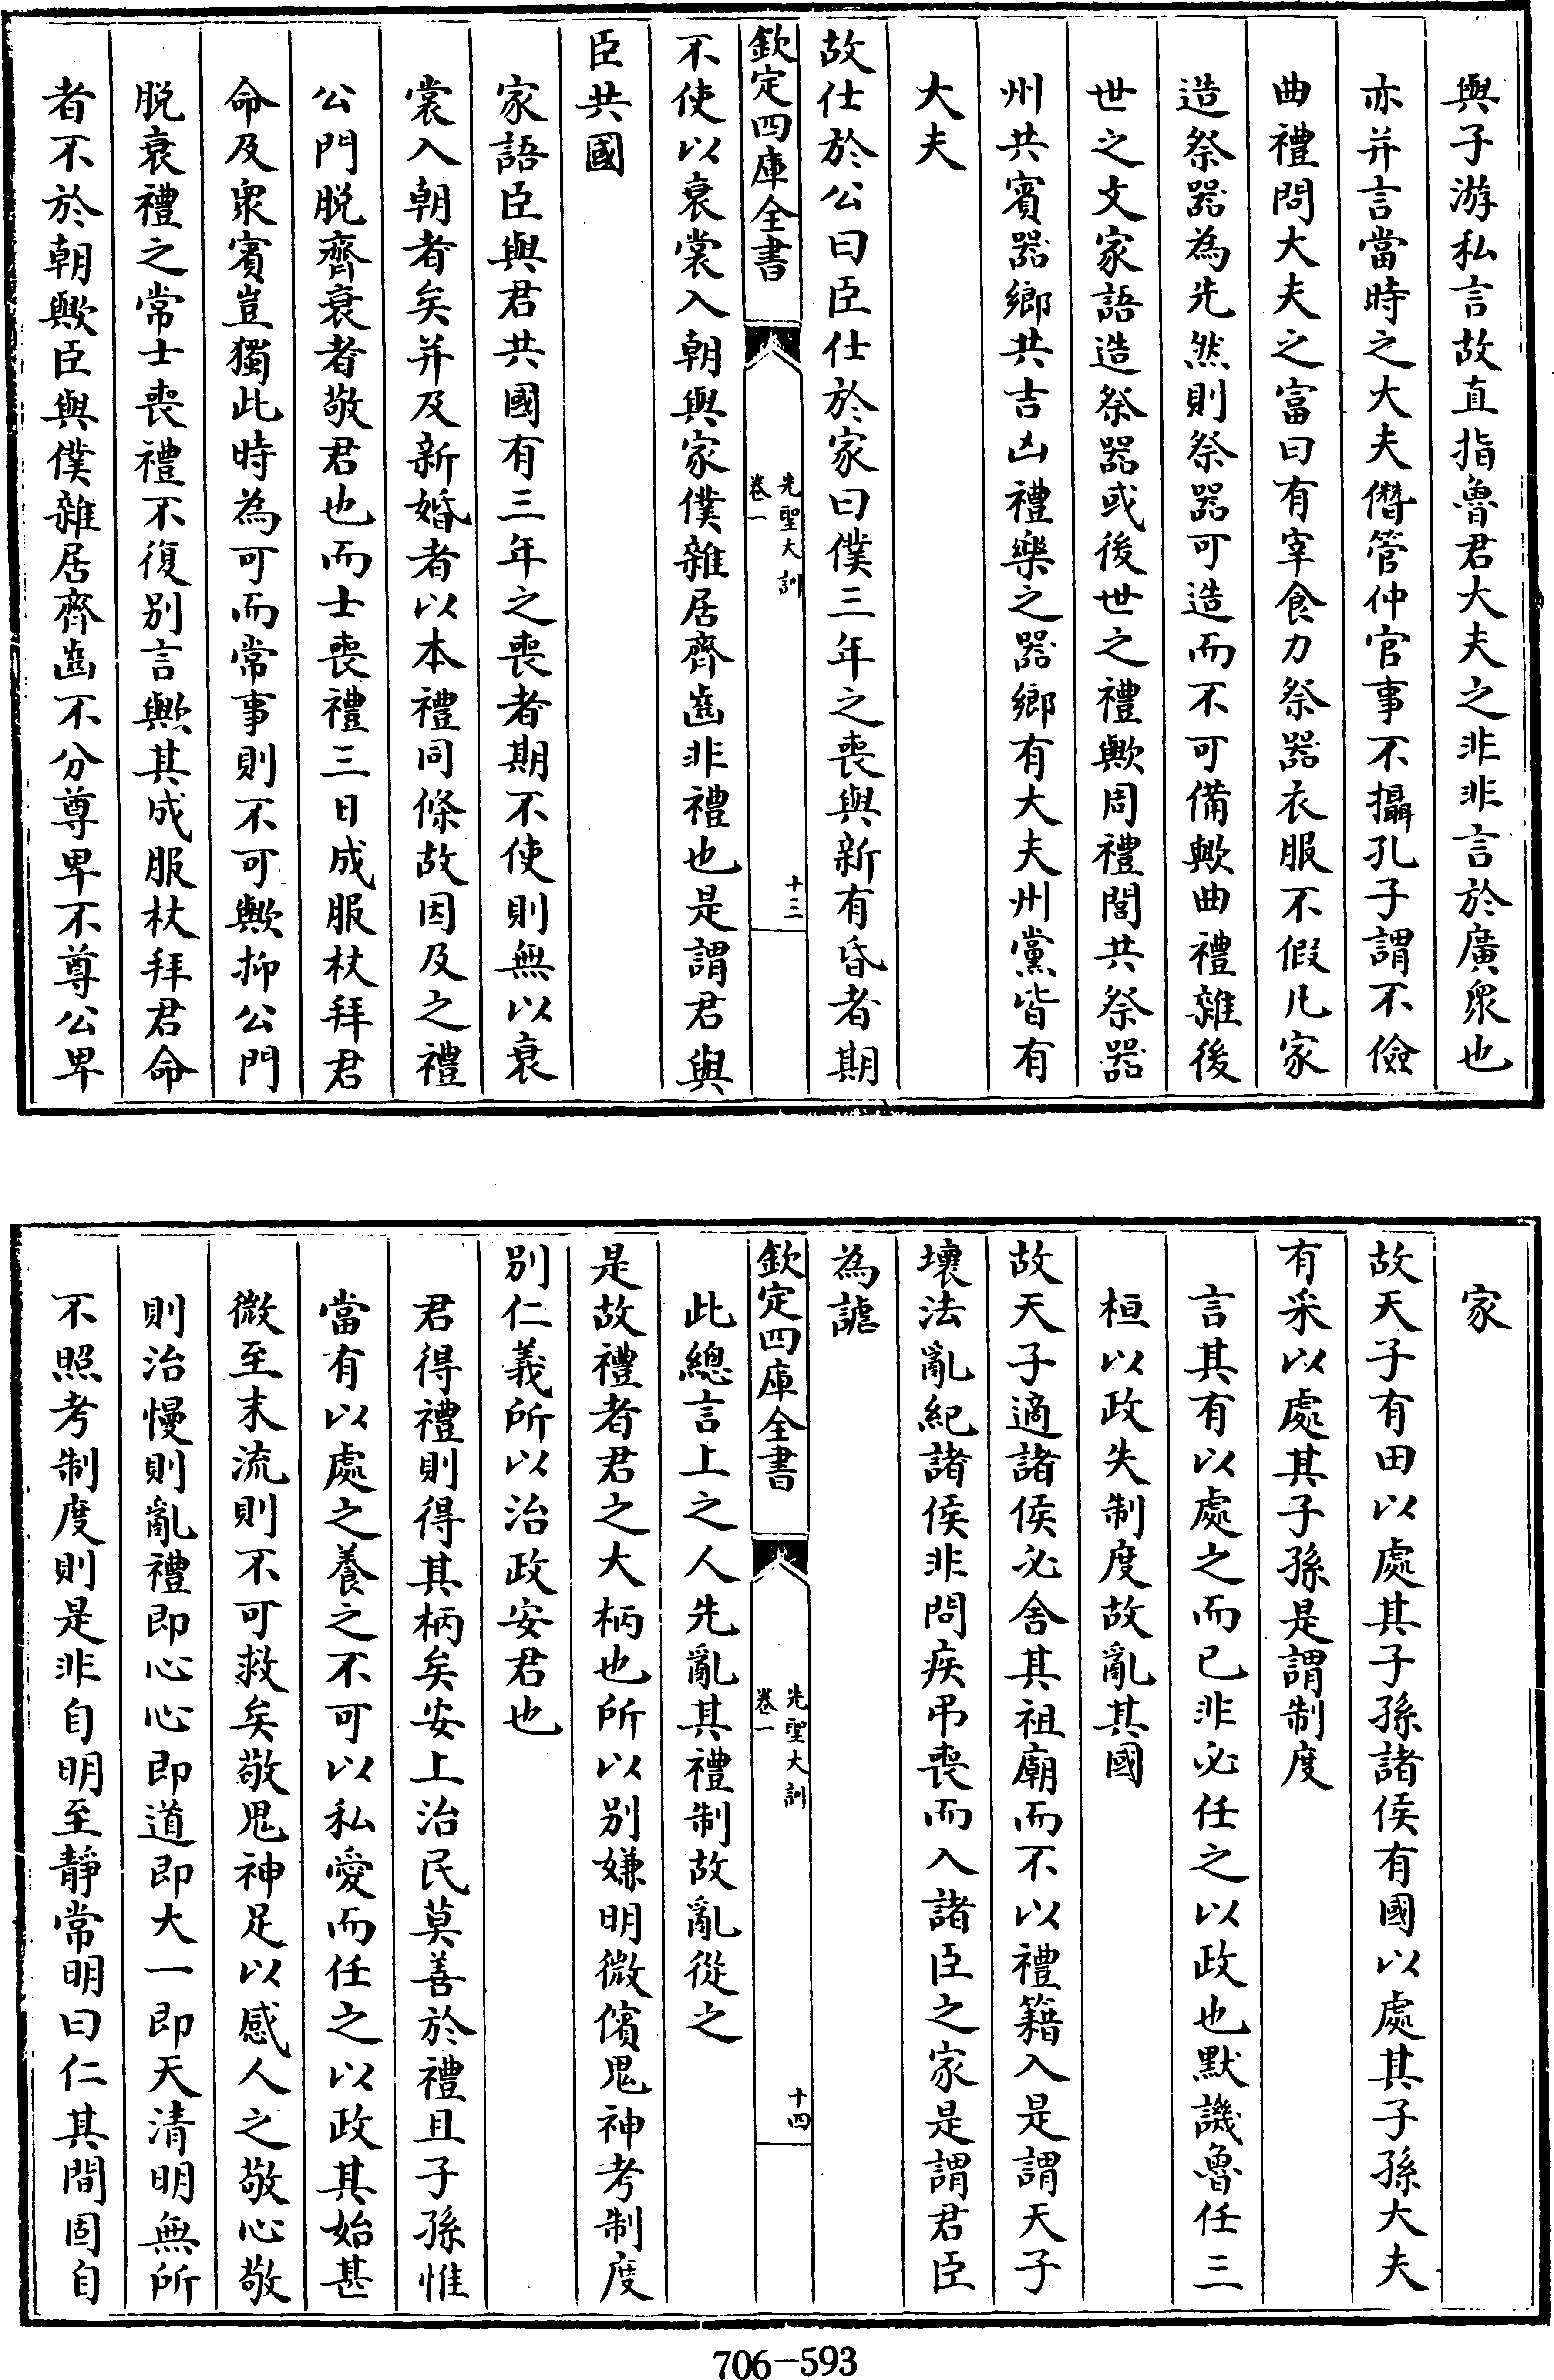 與子游私言故直指魯君大夫之非非言於廣衆也
亦并言當時之大夫僭管仲官事不攝孔子謂不儉
曲禮問大夫之富曰有宰食力祭器衣服不假凡家
造祭器為先然則祭器可造而不可備歟曲禮雜後
世之文家語造祭器或後世之禮歟周禮閭共祭器
州共賓器鄉共吉凶禮樂之器鄉有大夫州黨皆有
大夫
故仕於公曰臣仕於家曰僕三年之喪與新有昏者期
欽定四庫全書
先聖大訓
卷一
十三
不使以衰裳入朝與家僕雜居齊齒非禮也是謂君與
臣共國
家語臣與君共國有三年之喪者期不使則無以衰
裳入朝者矣并及新婚者以本禮同條故因及之禮
公門脱齊衰者敬君也而士喪禮三日成服杖拜君
命及衆賓豈獨此時為可而常事則不可歟抑公門
脱衰禮之常士喪禮不復别言歟其成服杖拜君命
者不於朝歟臣與僕雜居齊齒不分尊卑不尊公卑
家
故天子有田以處其子孫諸侯有國以處其子孫大夫
有采以處其子孫是謂制度
言其有以處之而已非必任之以政也默譏魯任三
桓以政失制度故亂其國
故天子適諸侯必舍其祖廟而不以禮籍入是謂天子
壞法亂紀諸侯非問疾弔喪而入諸臣之家是謂君臣
為謔
欽定四庫全書
先聖大訓
卷一
十四
此總言上之人先亂其禮制故亂從之
是故禮者君之大柄也所以别嫌明微儐鬼神考制度
别仁義所以治政安君也
君得禮則得其柄矣安上治民莫善於禮且子孫惟
當有以處之養之不可以私愛而任之以政其始甚
微至末流則不可救矣敬鬼神足以感人之敬心敬
則治慢則亂禮即心心即道即大一即天清明無所
不照考制度則是非自明至靜常明曰仁其間固自
706-593